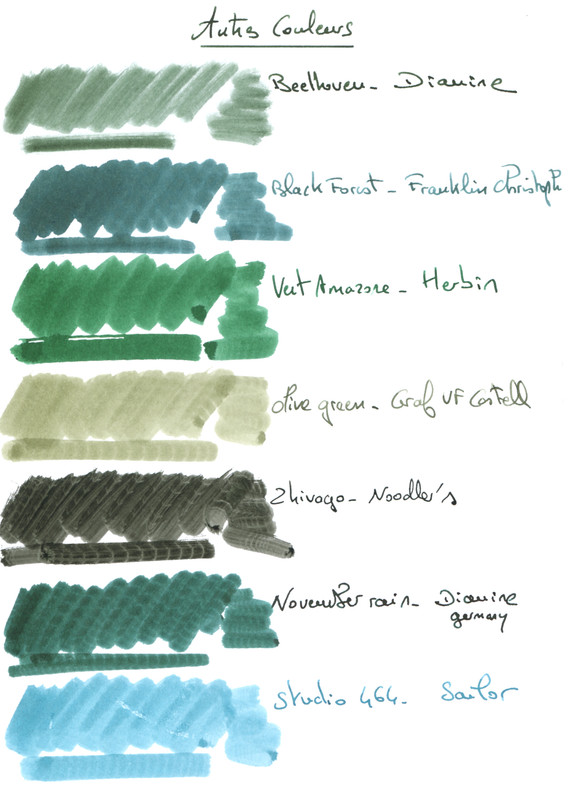 Autres Couleurs
Beethoven - Diamine
Black Forest - Franklin Christoph
Vert Amazone - Herbin
Olive green - Graf VF Castell
Zhivago - Noodler's
November rain - Diamine
germany
Studio 464 - Sailor